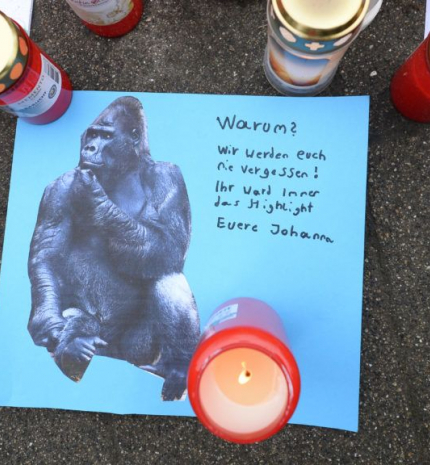 Warum?
Wir werden euch
nie vergessen!
Ihr ward Immer
das Highlight
Euere Johanna